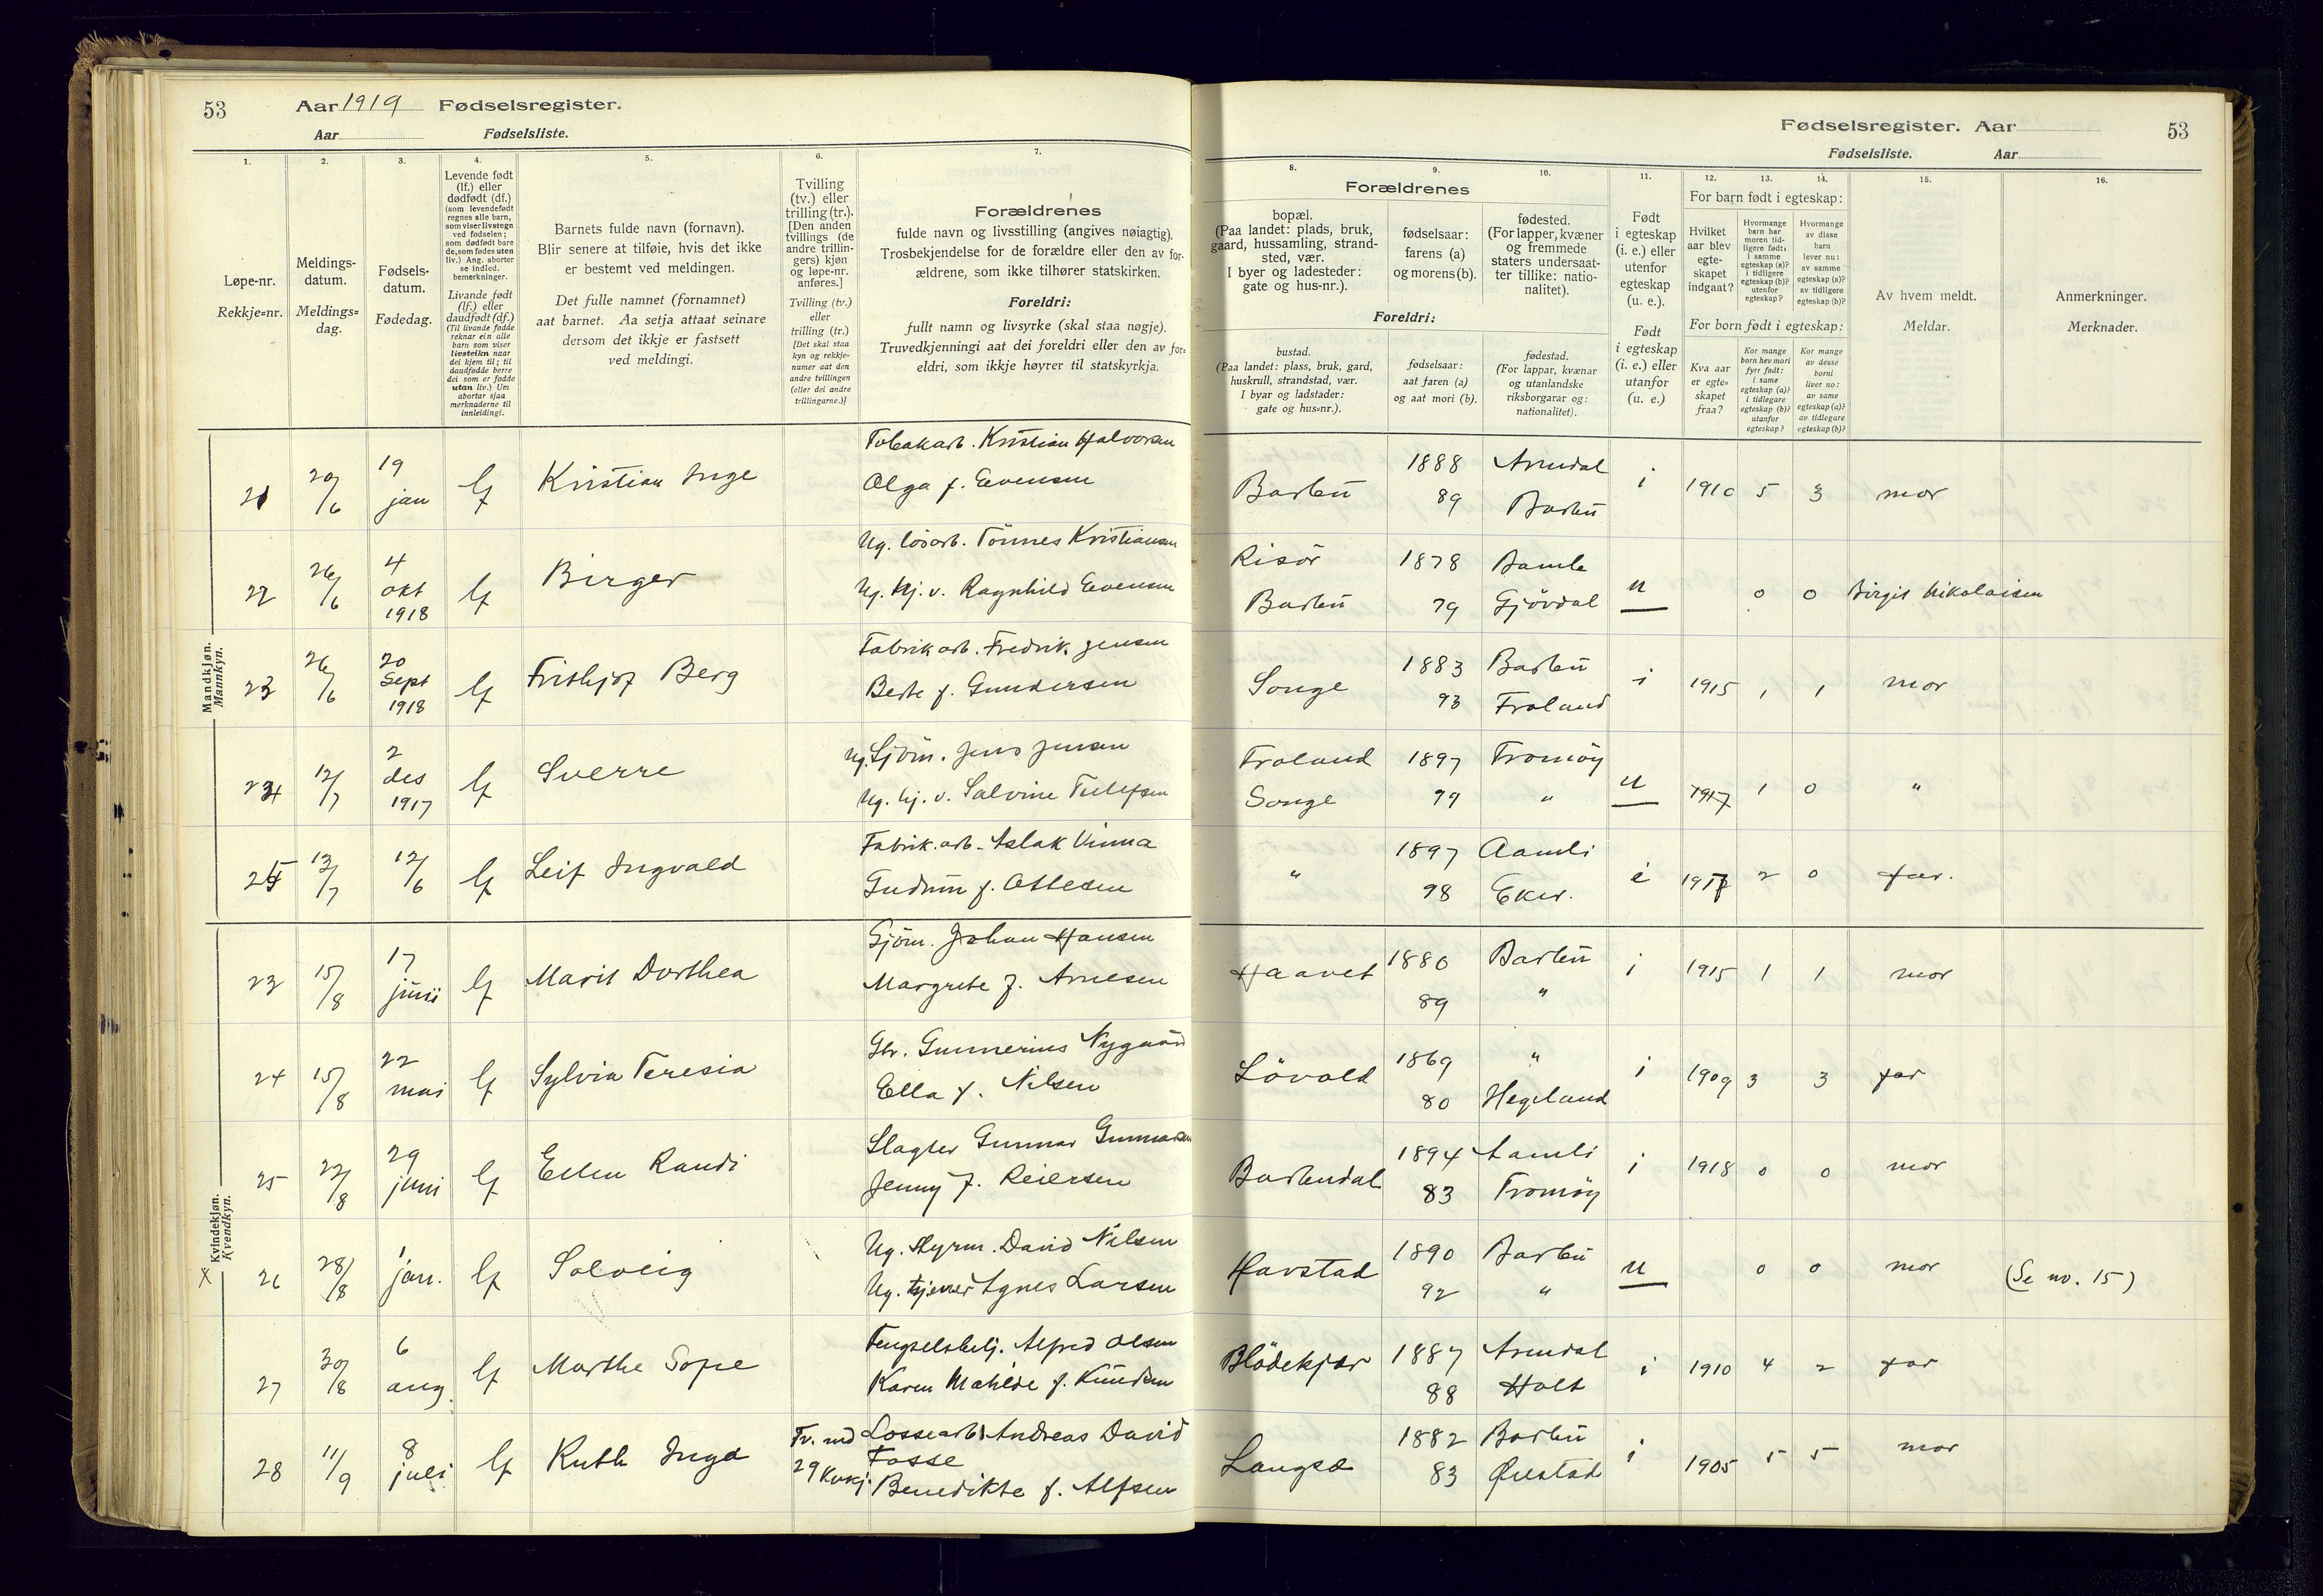 53 Aar 1919 Fødselsregister.
Aar Fødselsliste.
Fødselsregister. Aar 53
Fødselsliste. Aar
1. 2. 3. 4. 5. 6. 7. 8. 9. 10. 11. 12. 13. 14. 15. 16.
Løpe-nr.
Rekkje=nr.
Meldings-
datum.
Meldings=
dag.
Fødsels-
datum.
Fødedag.
Levende født
(lf.) eller
dødfødt (df.)
(som levendefødt
regnes alle barn,
som viser livstegn
ved fødselen;
som dødfødt bare
de, som fødes uten
liv.) Ang. aborter
se indled.
bemerkninger.
Livande født
(lf.) eller
daudfødt (df.)
(Til livande fødde
reknar ein alle
barn som viser
livsteikn naar
dei kjem til; til
daudfødde berre
dei som er fødde
utan liv.) Um
abortar sjaa
merknaderne til
innleidingi.
Barnets fulde navn (fornavn).
Blir senere at tilføie, hvis det ikke
er bestemt ved meldingen.
Det fulle namnet (fornamnet)
aat barnet. Aa setja attaat seinare
dersom det ikkje er fastsett
ved meldingi.
Tvilling
(tv.) eller
trilling (tr.).
[Den anden
tvillings (de
andre trillin-
gers) kjøn
og løpe-nr.
anføres.]
Tvilling (tv.)
eller
trilling (tr.)
[Det skal staa
kyn og rekkje-
numer aat den
andre tvillingen
(eller dei andre
trillingarne.)]
Forældrenes
fulde navn og livsstilling (angives nøiagtig).
Trosbekjendelse for de forældre eller den av for-
ældrene, som ikke tilhører statskirken.
Foreldri:
fullt namn og livsyrke (skal staa nøgje).
Truvedkjenningi aat dei foreldri eller den av for=
eldri, som ikkje høyrer til statskyrkja.
Forældrenes
bopæl.
(Paa landet: plads, bruk,
gaard, hussamling, strand-
sted, vær.
I byer og ladesteder:
gate og hus-nr.).
fødselsaar:
farens (a)
og morens (b).
fødested.
(For lapper, kvæner
og fremmede
staters undersaat-
ter tillike: natio-
nalitet).
Foreldri:
bustad.
(Paa landet: plass, bruk, gard,
huskrull, strandstad, vær.
I byar og ladstader:
gate og hus=nr.).
fødselsaar:
aat faren (a)
og aat mori (b).
fødestad.
(For lappar, kvænar
og utanlandske
riksborgarar og:
nationalitet).
Født
i egteskap
(i. e.) eller
utenfor
egteskap
(u. e.).
Født
i egteskap
(i. e.) eller
utanfor
(u. e.)
For barn født i egteskap:
Hvilket
aar blev
egte-
skapet
indgaat?
Hvormange
barn har
moren tid-
ligere født:
i samme
egteskap (a)?
i tidligere
egteskap (b)?
utenfor
egteskap?
Hvormange
av disse
barn
lever nu:
av samme
egteskap (a)?
av tidligere
egteskap (b)?
For born født i egteskap:
Kva aar
er egte=
skapet
fraa?
Kor mange
born hev mori
fyrr født:
i same
egteskap (a)?
i tidlegare
egteskap (b)?
utanfor
egteskap?
Kor mange
av desse
borni
liver no:
av same
egteskap (a)?
av tidlegare
egteskap (b)?
Av hvem meldt.
Meldar.
Anmerkninger.
Merknader.
Mandkjøn.
Mannkyn.
21 20/6 19 jan lf Kristian Inge Tobakarb. Kristian Halvorsen
Olga f. Evensen Barbu 1888 Arendal i 1910 5 3 mor
89 Barbu
22 26/6 4 okt 1918 lf Birger Ug. løsarb. Tönnes Kristiansen Risör 1878 Bamle
Ug. hj. v. Ragnhild Evensen Barbu 79 Gjövdal u 0 0 Birgit Nikolaisen
23 26/6 20 Sept 1918 lf Frithjof Berg Fabrikarb. Fredrik Jensen
Berte f. Gundersen Songe 1883 Barbu i 1915 1 1 mor
93 Froland
24 12/7 2 des 1917 lf Sverre Ug. Sjöm. Jens Jensen Froland 1897 Tromöy
Ug. hj. v. Salvine Tellefsen Songe 99 " u 1917 1 0 "
25 12/7 12/6 lf Leif Ingvald Fabrik.arb. Aslak Vinna
Gudrun f. Ottesen " 1897 Aamli i 1917 2 0 far.
98 Eker.
Kvindekjøn.
Kvendkyn.
23 15/8 17 juni lf Marit Dorthea Sjöm. Johan Hansen
Margrete f. Arnesen Haavet 1880 Barbu i 1915 1 1 mor
89 "
24 15/8 22 mai lf Sylvia Teresia Gbr. Gunnerius Nygaard
Ella f. Nilsen Lövold 1869 " i 1909 3 3 far
80 Hegeland
25 22/8 29 juni lf Ellen Randi Slagter Gunnar Gunnarsen
Jenny f. Reiersen Barbudal 1894 Aamli i 1918 0 0 mor
83 Tromöy
X 26 28/8 1 jan. lf Solveig Ug. Styrm. David Nilsen
Ug. tjener Agnes Larsen Havstad 1890 Barbu u 0 0 mor (Se no. 15)
92 "
27 30/8 6 aug. lf Marthe Sofie Fengselsbetj. Alfred Olsen
Karen Mathilde f. Knudsen Blödekjær 1887 Arendal i 1910 4 2 far
88 Holt
28 11/9 8 juli lf Ruth Inga Tv. md 29 Kvkj. Lossearb. Andreas David
Fosse
Benedikte f. Alfsen Langsæ 1882 Barbu i 1905 5 5 mor
83 Øiestad